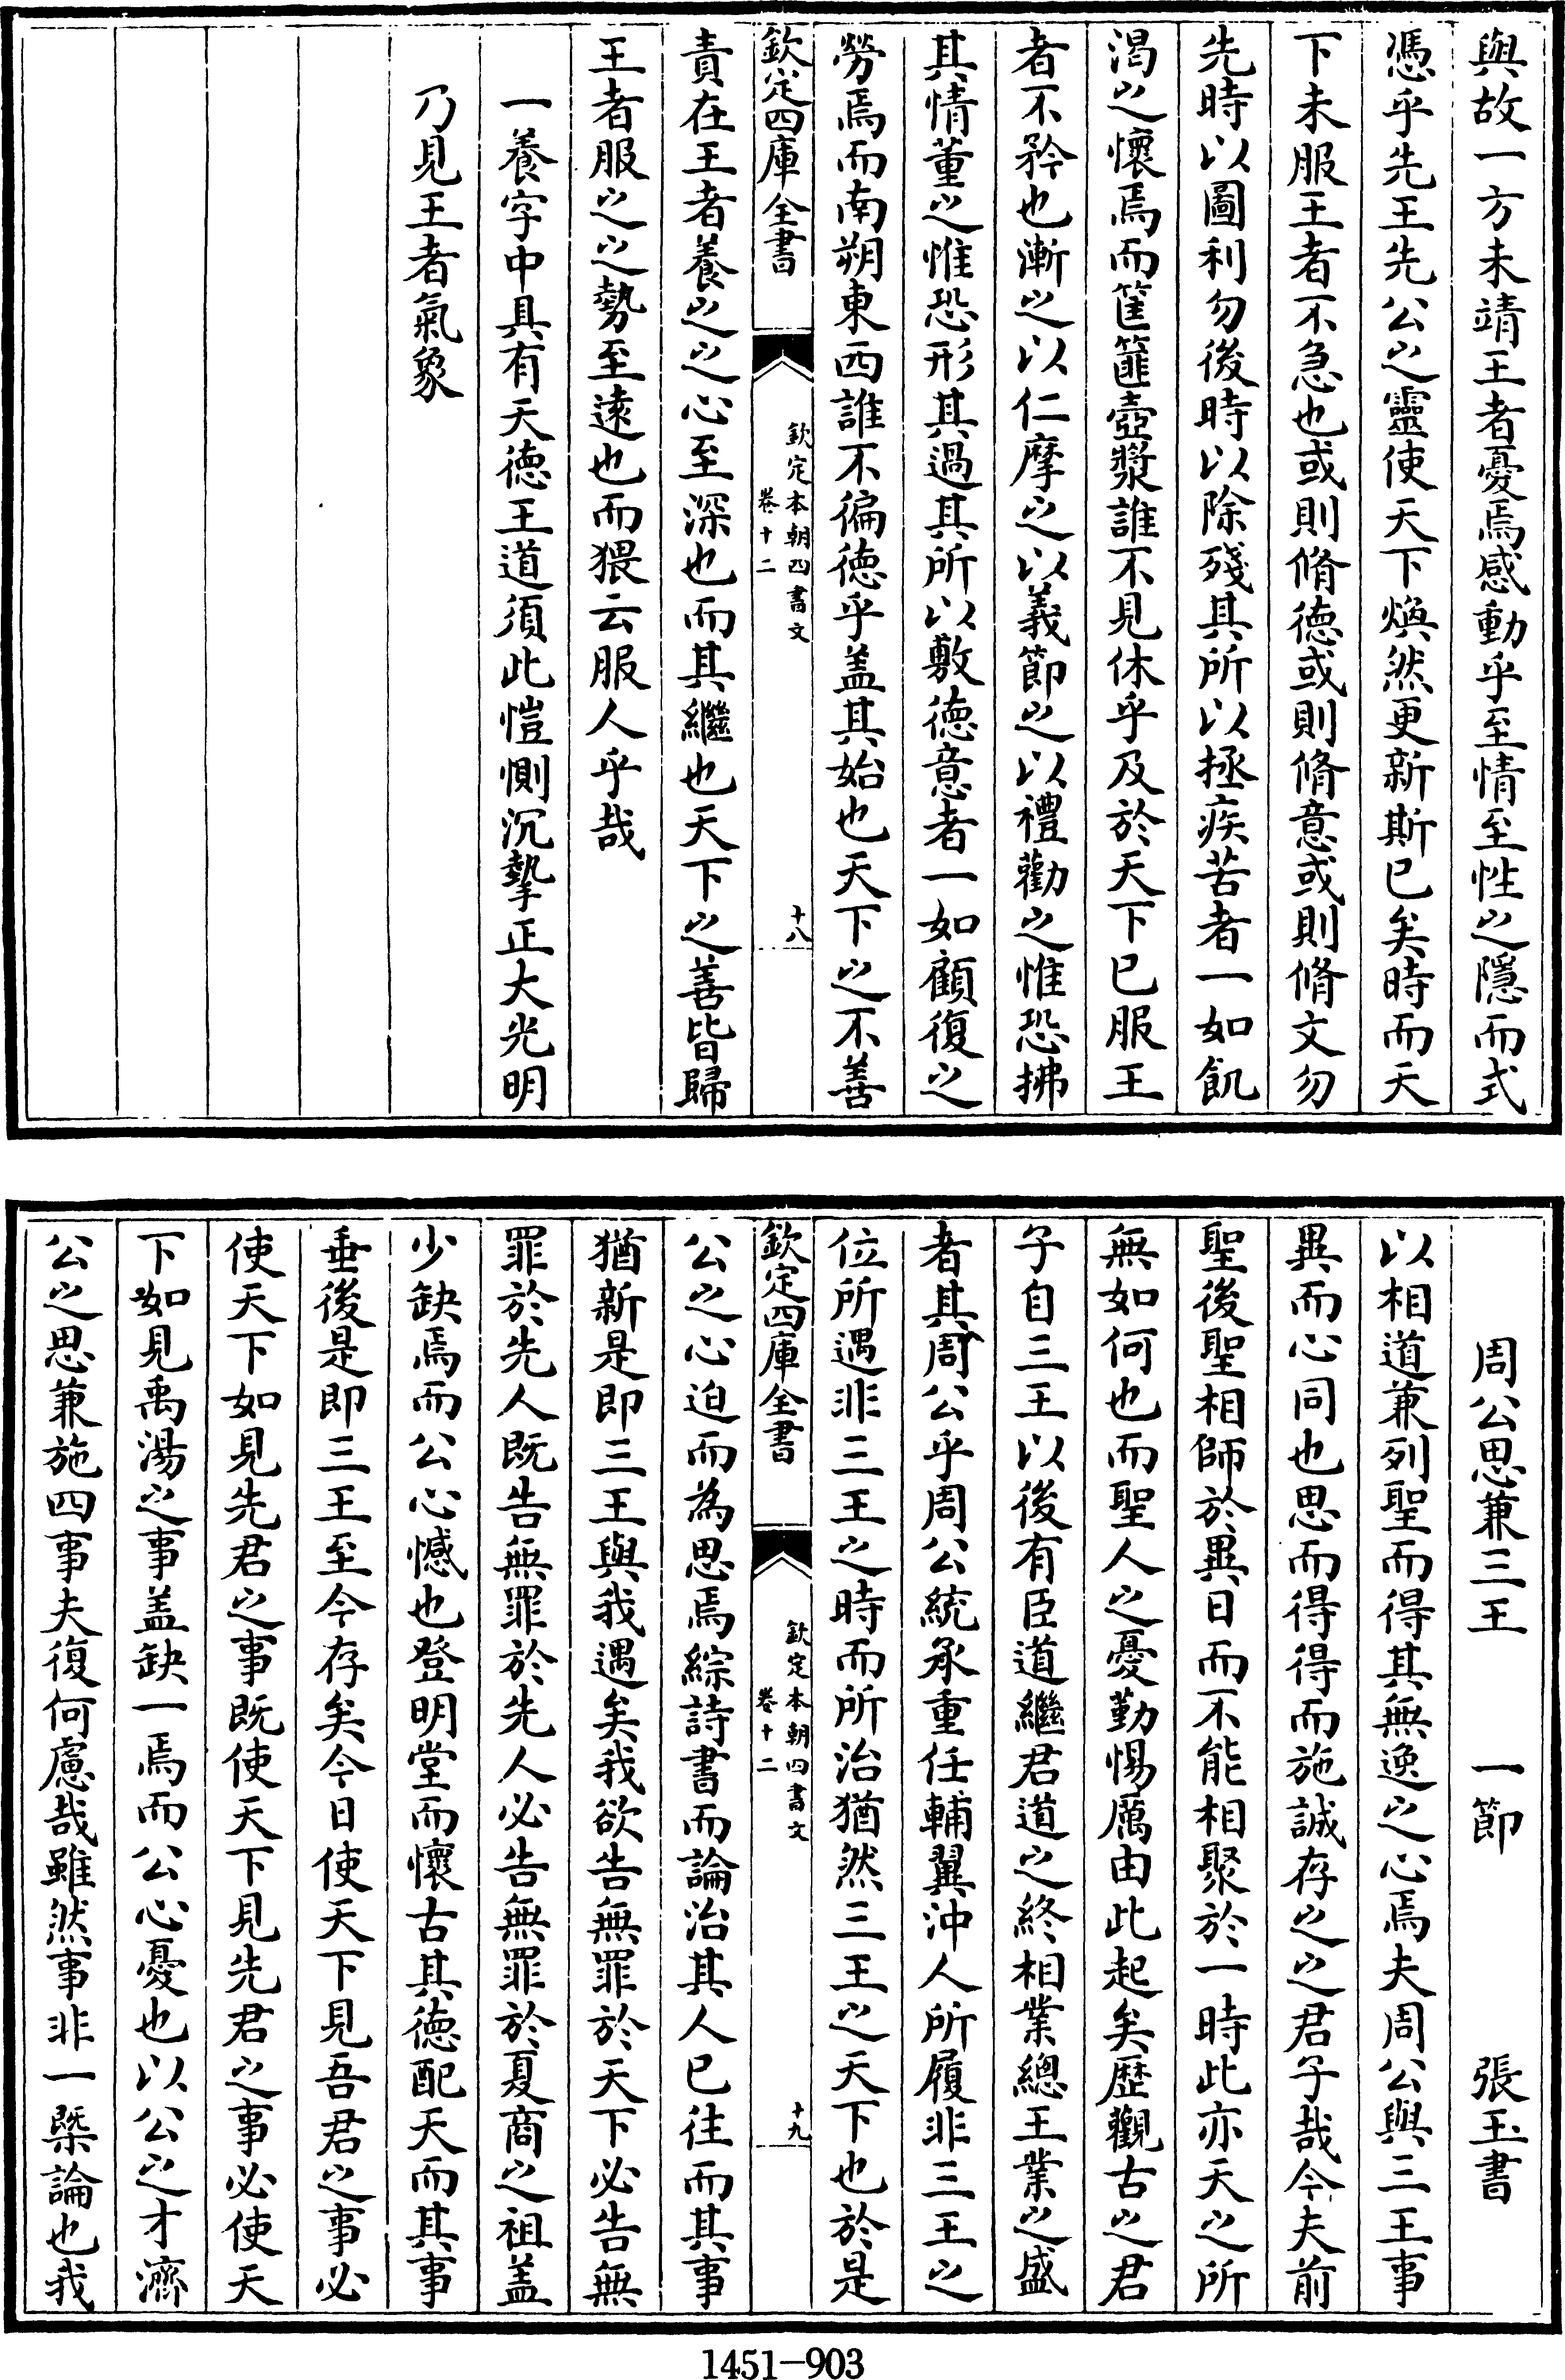 與故一方未靖王者憂焉感動乎至情至性之隱而式
憑乎先王先公之靈使天下煥然更新斯已矣時而天
下未服王者不急也或則脩德或則脩意或則脩文勿
先時以圖利勿後時以除殘其所以拯疾苦者一如飢
渴之懷焉而筐篚壺漿誰不見休乎及於天下已服王
者不矜也漸之以仁摩之以義節之以禮勸之惟恐拂
其情董之惟恐形其過其所以敷德意者一如顧復之
勞焉而南朔東西誰不徧德乎盖其始也天下之不善
欽定四庫全書
欽定本朝四書文
卷十二
十八
責在王者養之之心至深也而其繼也天下之善皆歸
王者服之之勢至遠也而猥云服人乎哉
一養字中具有天德王道須此愷惻沉摯正大光明
乃見王者氣象
周公思兼三王 一節 張玉書
以相道兼列聖而得其無逸之心焉夫周公與三王事
異而心同也思而得得而施誠存之之君子哉今夫前
聖後聖相師於異日而不能相聚於一時此亦天之所
無如何也而聖人之憂勤惕厲由此起矣歴觀古之君
子自三王以後有臣道繼君道之終相業總王業之盛
者其周公乎周公統承重任輔翼沖人所履非三王之
位所遇非三王之時而所治猶然三王之天下也於是
欽定四庫全書
欽定本朝四書文
卷十二
十九
公之心迫而為思焉綜詩書而論治其人已往而其事
猶新是即三王與我遇矣我欲告無罪於天下必告無
罪於先人既告無罪於先人必告無罪於夏商之祖盖
少缺焉而公心憾也登明堂而懷古其德配天而其事
垂後是即三王至今存矣今日使天下見吾君之事必
使天下如見先君之事既使天下見先君之事必使天
下如見禹湯之事盖缺一焉而公心憂也以公之才濟
公之思兼施四事夫復何慮哉雖然事非一槩論也我
1451-903